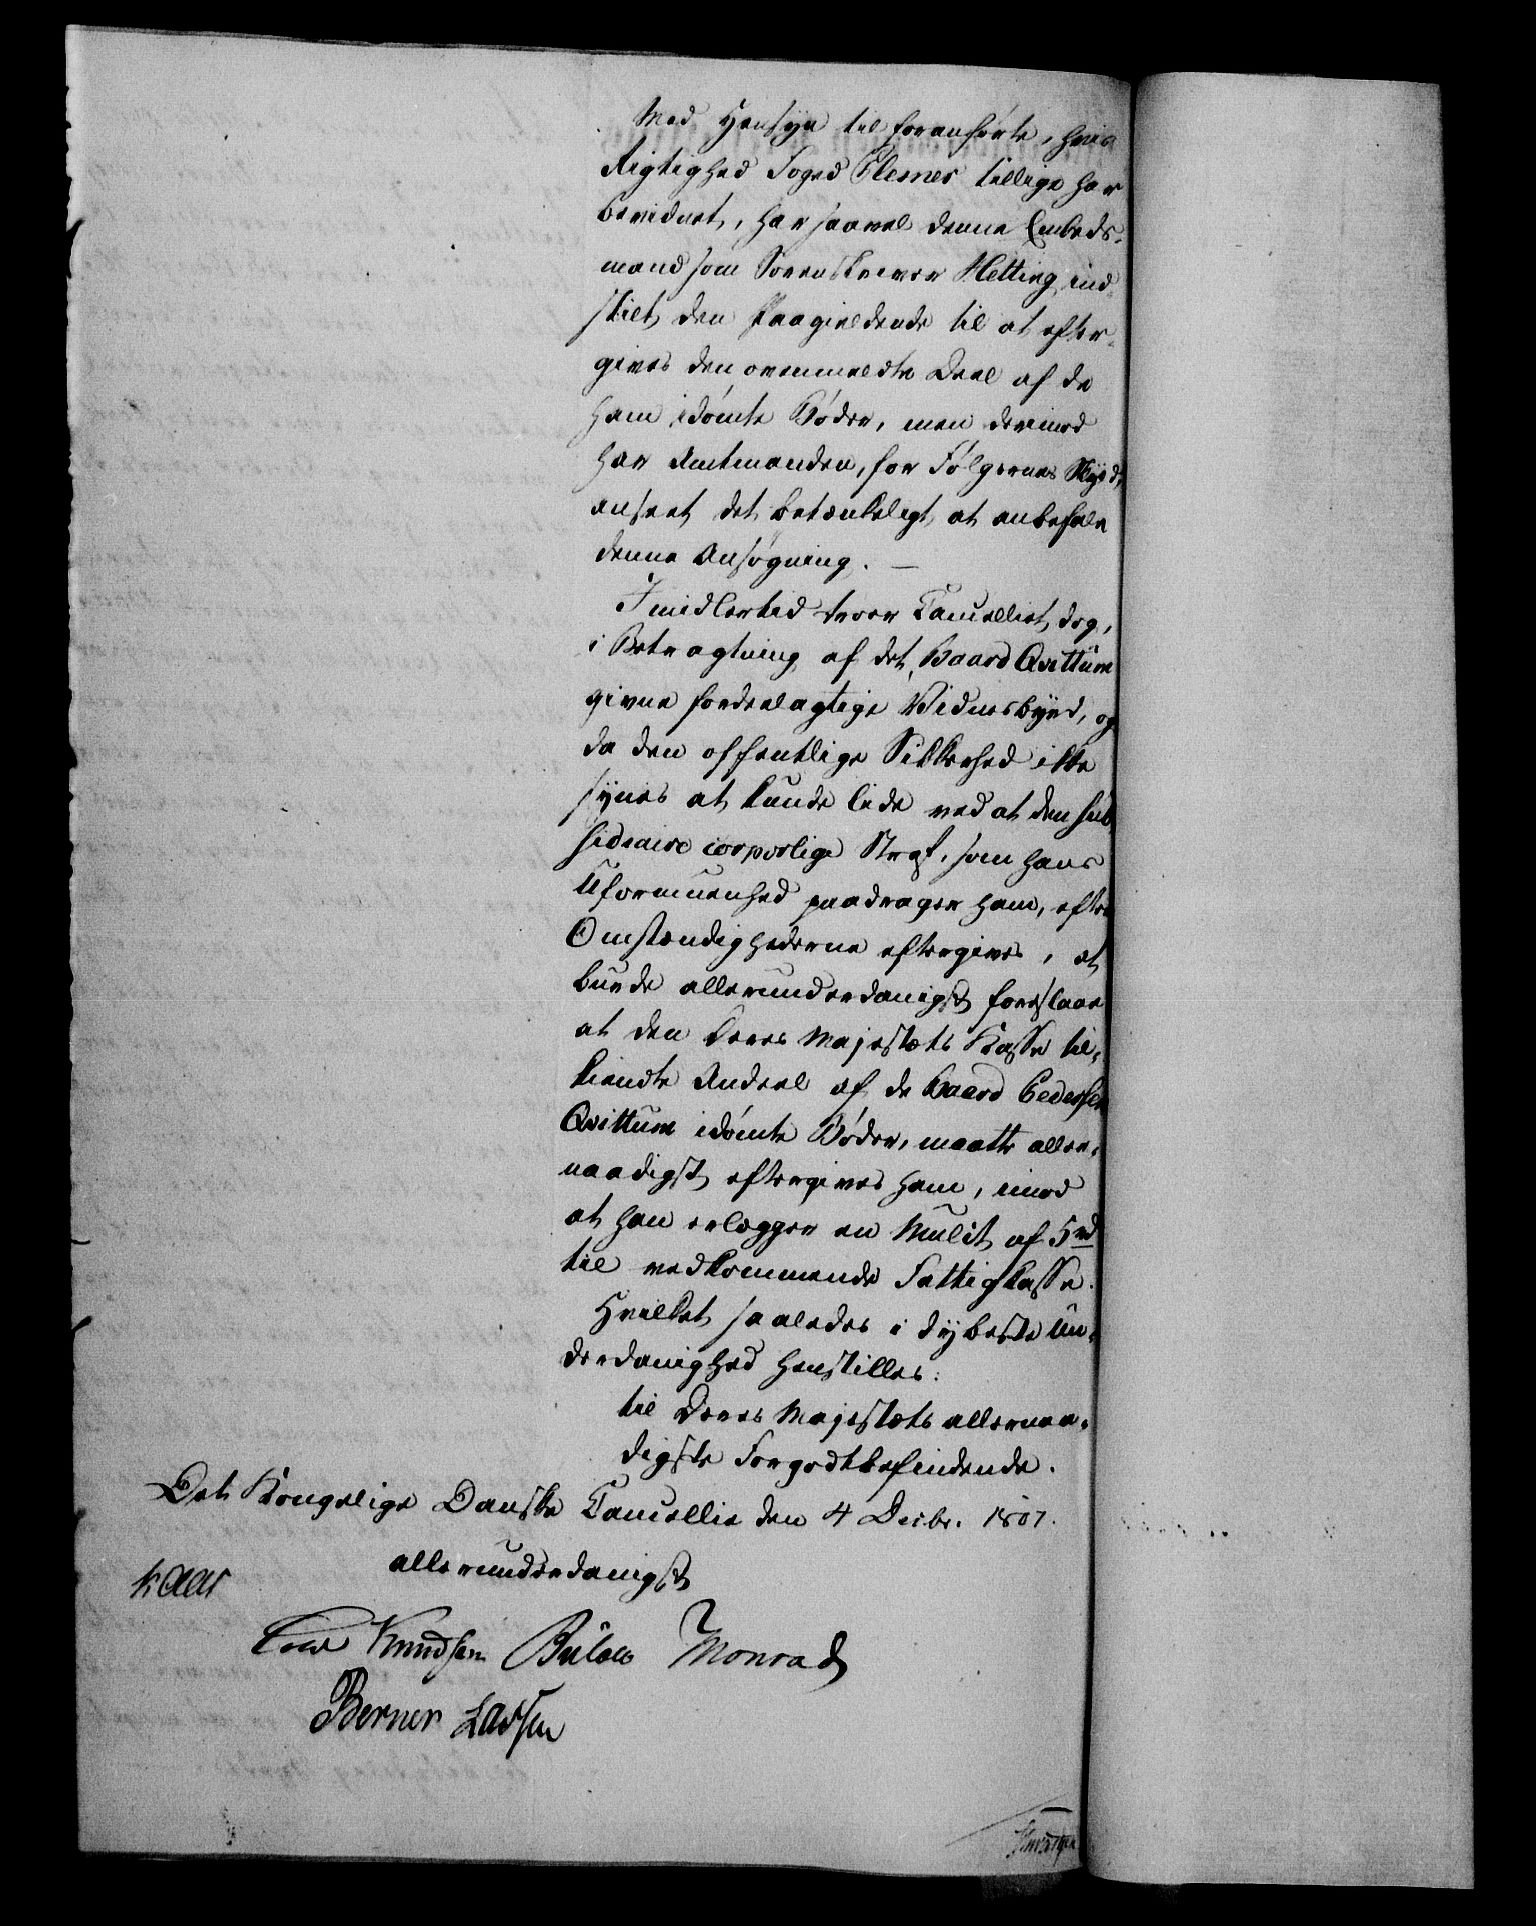 Med Hensyn til foranførte, hvis
Rigtighed Foged Elesner tillige har
bevidnet, har saavel denne Embeds-
mand som Sorenskriver Hetting ind-
stilt den Paagieldende til at efter-
gives den ovenmeldte Deel af de
ham idømte Bøder, men derimod
har Amtmanden, for Følgernes Skyld,
anseet det betænkeligt, at anbefale
denne Ansøgning. —
Imidlertid troer Cancelliet, dog,
i Betragtning af det, Baard Qvittüm
givne fordeelagtige Vidnesbyrd, og
da den offentlige Sikkerhed ikke
synes at kunde lide ved at den sub
sidiaire corporlige Straf, som hans
Uformuenhed paadrager ham, efter
Omstændighederne eftergives, at
burde allerunderdanigst foreslaae
at den Deres Majestæts Kasse til-
kiendte Andeel af de Baard Pedersen
Qvittum idømte Bøder, maatte aller-
naadigst eftergives ham, imod
at han erlægger en Mulct af 5 rd
til vedkommende Fattigkasse.
Hvilket saaledes i dybeste Un-
derdanighed henstilles:
til Deres Majestæts allernaa-
digste Forgodtbefindende.
Det Kongelige Danske Cancellie den 4 Decbr. 1807.
allerunderdanigst
Kaas
Knudsen Bülow Monrad
Berner Lassen